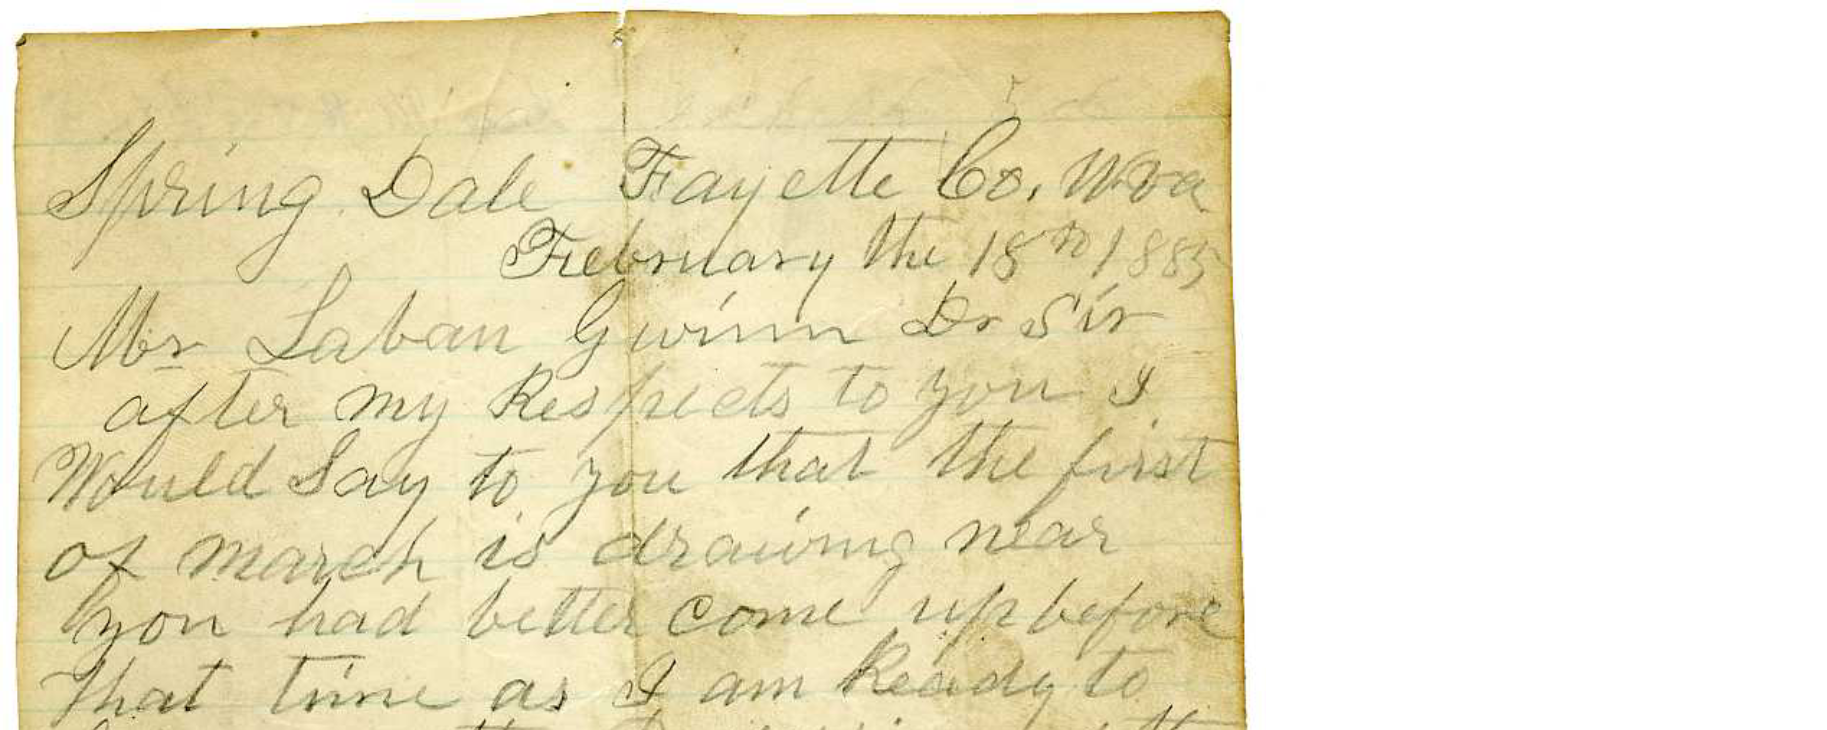 Spring Dale Fayette Co. W.va
February the 18th 1885
Mr Laban Gwinn Dr Sir
after my Respects to you I
Would Say to you that the first
of march is drawing near
you had better come up before
that time as I am Ready to